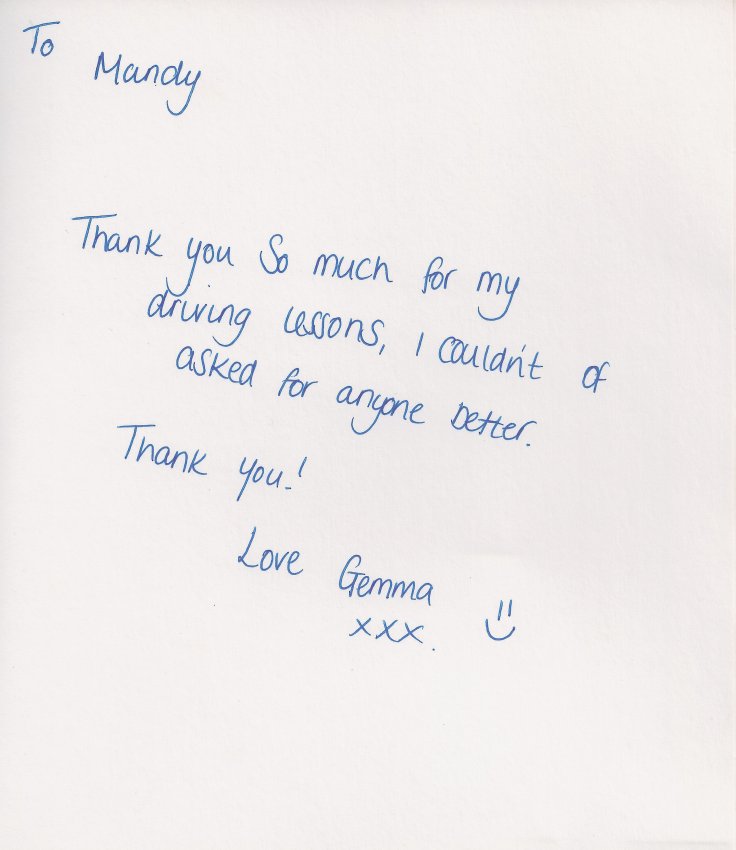 To
Mandy
Thank you So much for my
driving lessons, I couldn't of
asked for anyone better.
Thank you!
Love Gemma
xxx.